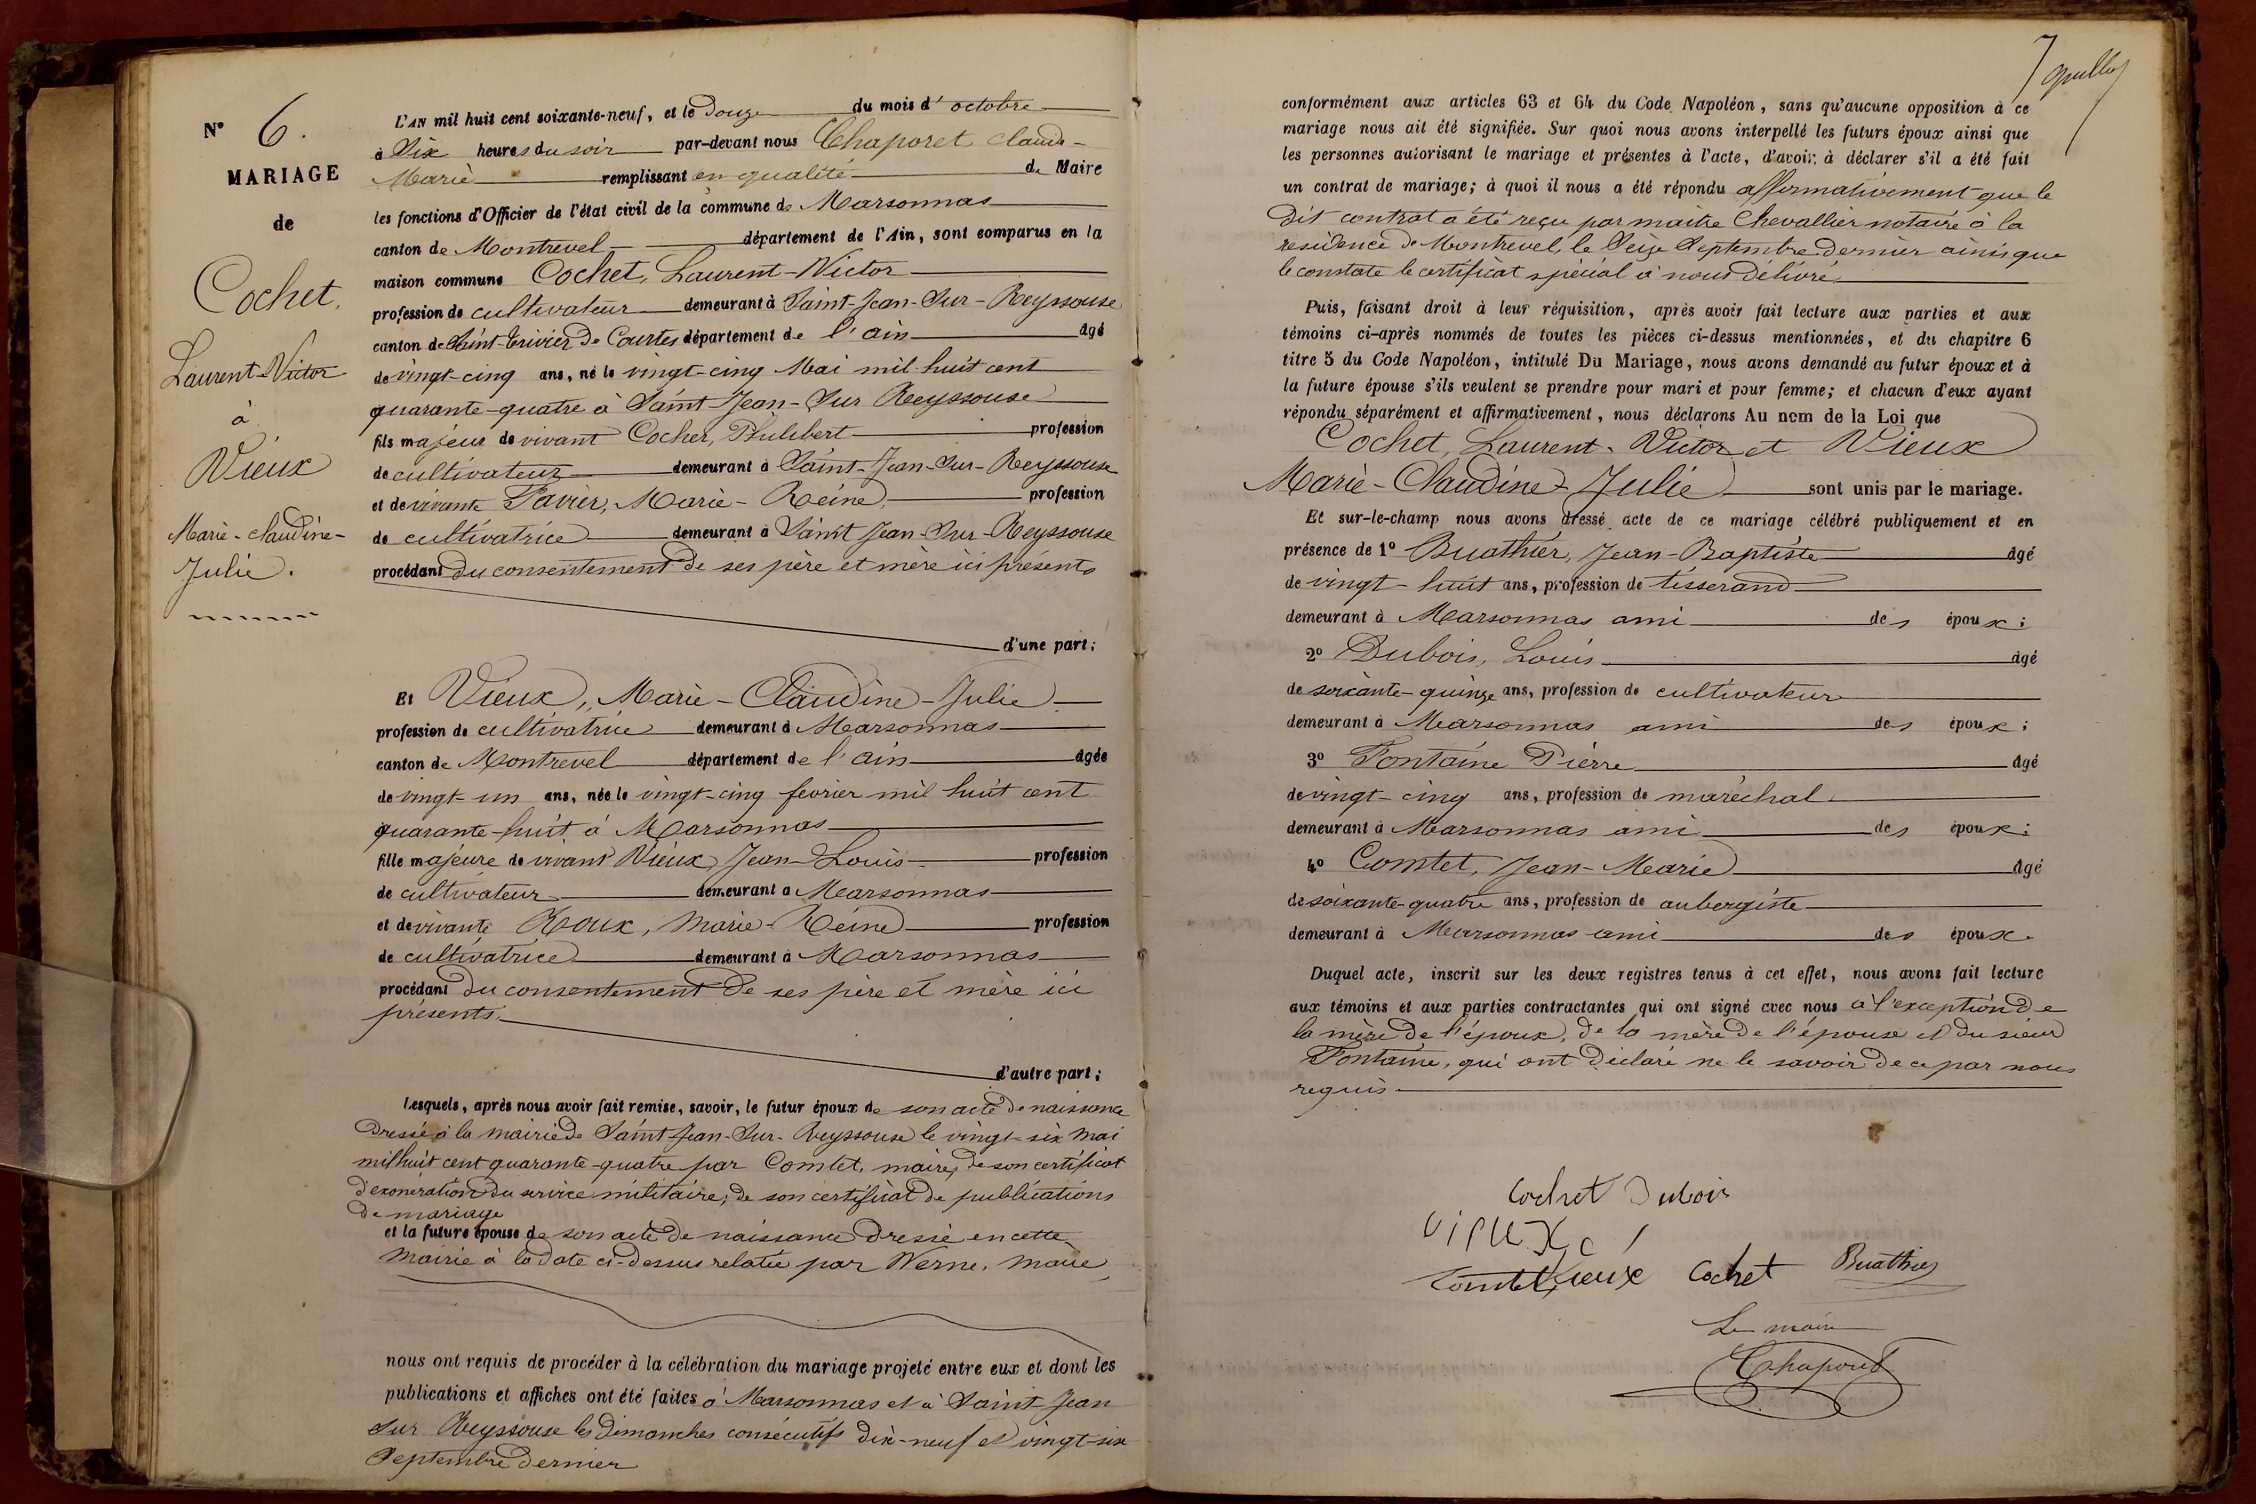 N° 6.
MARIAGE
de
Cochet,
Laurent-Victor
à
Vieux
Marie-Claudine-
Julie.
L'AN mil huit cent soixante-neuf, et le Douze du mois d'octobre
à Six heures du soir par-devant nous Chaporet Claude-
Marie remplissant en qualité de Maire
les fonctions d'Officier de l'état civil de la commune de Marsonnas
canton de Montrevel département de l'Ain, sont comparus en la
maison commune Cochet, Laurent-Victor
profession de cultivateur demeurant à Saint-Jean-Sur-Reyssouse
canton de Saint-Trivier de Courtes département de l'ain âgé
de vingt-cinq ans, né le vingt-cinq Mai mil huit cent
quarante-quatre à Saint-Jean-Sur Reyssouse
fils majeur de vivant Cochet, Philibert profession
de cultivateur demeurant à Saint-Jean-Sur-Reyssouse
et de vivante Pavier, Marie-Reine, profession
de cultivatrice demeurant à Saint Jean-Sur-Reyssouse
procédant du consentement de ses père et mère ici présents
d'une part;
Et Vieux, Marie-Claudine-Julie
profession de cultivatrice demeurant à Marsonnas
canton de Montrevel département de l'ain âgée
de vingt-un ans, née le vingt-cinq fevrier mil huit cent
quarante-huit à Marsonnas
fille majeure de vivant Vieux, Jean-Louis profession
de cultivateur demeurant à Marsonnas
et de vivante Roux, Marie-Reine profession
de cultivatrice demeurant à Marsonnas
procédant du consentement de ses père et mère ici
présents.
d'autre part;
Lesquels, après nous avoir fait remise, savoir, le futur époux de son acte de naissance
Dressé à la mairie de Saint-Jean-Sur-Reyssouse le vingt-six mai
mil huit cent quarante-quatre par Comtet, maire, de son certificat
d'exoneration du service militaire; de son certificat de publications
de mariage
et la future épouse de son acte de naissance dressé en cette
mairie à la date ci-dessus relatée par Werne, maire,
nous ont requis de procéder à la célébration du mariage projeté entre eux et dont les
publications et affiches ont été faites à Marsonnas et à Saint Jean
Sur Reyssouse les Dimanches consécutifs dix-neuf et vingt-six
Septembre dernier
7
conformément aux articles 63 et 64 du Code Napoléon, sans qu'aucune opposition à ce
mariage nous ait été signifiée. Sur quoi nous avons interpellé les futurs époux ainsi que
les personnes autorisant le mariage et présentes à l'acte, d'avoir à déclarer s'il a été fait
un contrat de mariage; à quoi il nous a été répondu affirmativement que le
dit contrat a été reçu par maître Chevallier notaire à la
residence de Montrevel, le Seize Septembre dernier ainsi que
le constate le certificat spécial à nous délivré.
Puis, faisant droit à leur réquisition, après avoir fait lecture aux parties et aux
témoins ci-après nommés de toutes les pièces ci-dessus mentionnées, et du chapitre 6
titre 5 du Code Napoléon, intitulé Du Mariage, nous avons demandé au futur époux et à
la future épouse s'ils veulent se prendre pour mari et pour femme; et chacun d'eux ayant
répondu séparément et affirmativement, nous déclarons Au nom de la Loi que
Cochet, Laurent-Victor et Vieux
Marie-Claudine-Julie sont unis par le mariage.
Et sur-le-champ nous avons dressé acte de ce mariage célébré publiquement et en
présence de 1° Buathier, Jean-Baptiste âgé
de vingt-huit ans, profession de tisserand
demeurant à Marsonnas ami des époux;
2° Dubois, Louis âgé
de soixante-quinze ans, profession de cultivateur
demeurant à Marsonnas ami des époux;
3° Fontaine Pierre âgé
de vingt-cinq ans, profession de maréchal
demeurant à Marsonnas ami des époux;
4° Comtet, Jean-Marie âgé
de soixante-quatre ans, profession de aubergiste
demeurant à Marsonnas ami des époux.
Duquel acte, inscrit sur les deux registres tenus à cet effet, nous avons fait lecture
aux témoins et aux parties contractantes qui ont signé avec nous à l'exception de
la mère de l'époux, de la mère de l'épouse et du sieur
Fontaine, qui ont déclaré ne le savoir de ce par nous
requis
Cochet Dubois
Vieux
Comtet Vieux Cochet Buathier
Le maire
Chaporet